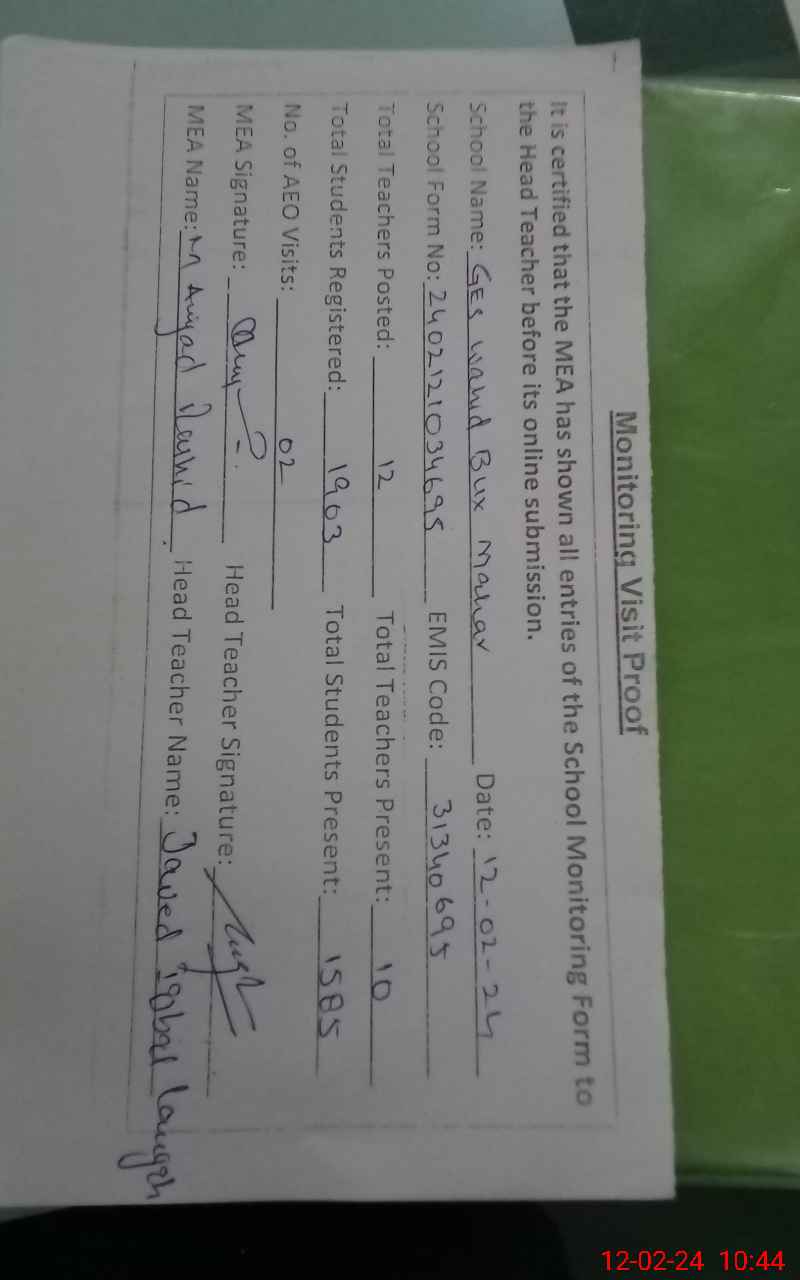 Monitoring Visit Proof
It is certified that the MEA has shown all entries of the School Monitoring Form to
the Head Teacher before its online submission.
School Name: GES Wahid Bux Mahar Date: 12-02-24
School Form No: 2402121034695 EMIS Code: 31340695
Total Teachers Posted: 12 Total Teachers Present: 10
Total Students Registered: 1903 Total Students Present: 1585
No. of AEO Visits: 02
MEA Signature: Head Teacher Signature:
MEA Name: M Amjad Rashid Head Teacher Name: Javed Iqbal Langah
12-02-24 10:44